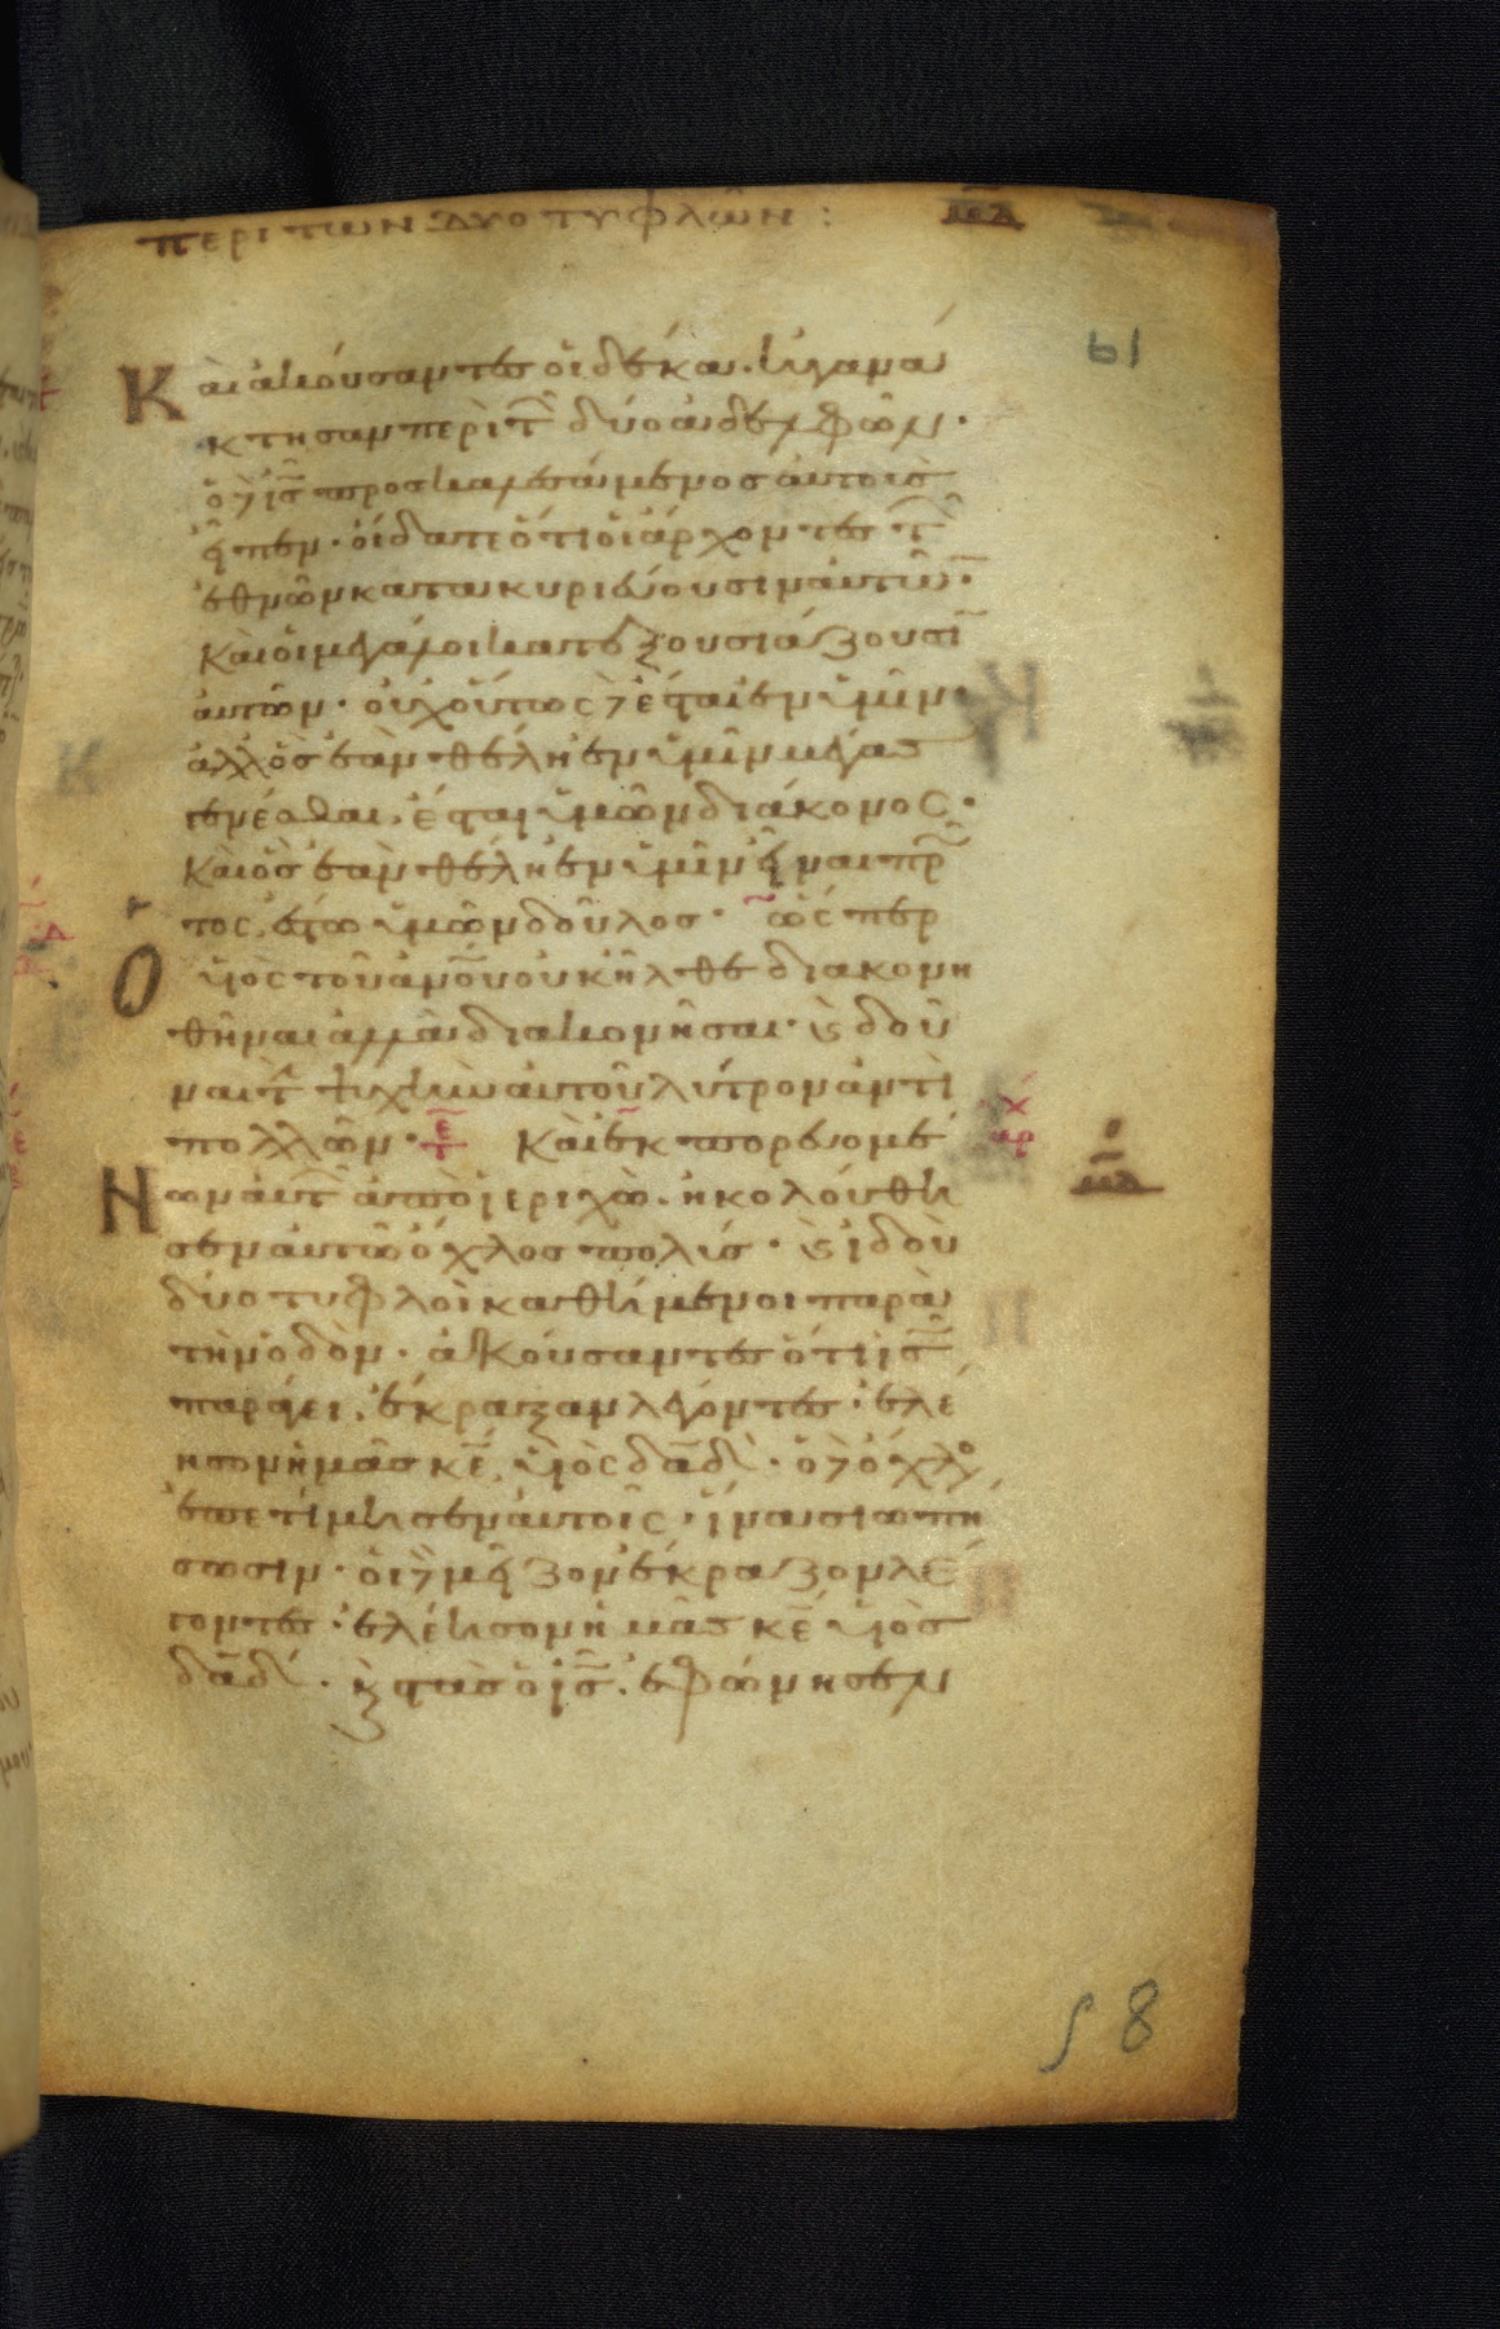 ΠΕΡΙ ΤΩΝ ΔΥΟ ΤΥΦΛΩ͂Ν : ΜΔ
61
Κ αὶ ἀκούσαντες οἱ δέκα. ἠγανά
κτησαν περὶ τ̑ δύο ἀδελφῶν ·
ὁ δὲ ις̅ προσκαλεσάμενος αὐτοὺς
εἶπεν · οἴδατε ὅτι οἱ ἄρχοντες τ̑
ἐθνῶν κατακυριεύουσιν αὐτῶν ·
καὶ οἱ μεγάλοι κατεξουσιάζουσι̅
αὐτῶν · οὐχ οὕτως δὲ ἔσται ἐν ὑμῖν ·
ἀλλ' ὃς ἐὰν θέλη ἐν ὑμῖν μέγας
γενέσθαι, ἔσται ὑμῶν διάκονος ·
καὶ ὃς ἐὰν θέλη ἐν ὑμῖν εἶναι πρῶ
τος, ἔστω ὑμῶν δοῦλος · ὥσπερ
Ὁ υἱὸς τοῦ ἀν̅ου οὐκ ἦλθε διακονη
θῆναι ἀλλὰ διακονῆσαι · καὶ δοῦ
ναι τ̑ ψυχὴν αὐτοῦ λύτρον ἀντὶ
πολλῶν · τε̅ Καὶ ἐκπορευομέ ἀρχ
Ν ων αὐτ̑ ἀπὸ ἱεριχὼ. ἠκολούθη ΜΔ
σεν αὐτῶ ὄχλος πολύς · καὶ ἰδοὺ
δύο τυφλοὶ καθήμενοι παρὰ
τὴν ὁδὸν · ἀκούσαντες ὅτι ις̅
παράγει, ἔκραξαν λέγοντες · ἐλέ
ησον ἡμᾶς κε̅, υἱὸς δα̅δ · ὁ δὲ ὄχλο
ἐπετίμησεν αὐτοῖς · ἵνα σιωπή
σωσιν · οἱ δὲ μεῖζον ἔκραζον λέ
γοντες · ἐλέησον ἡμᾶς κε̅ υἱὸς
δα̅δ · καὶ στὰς ὁ ις̅. ἐφώνησεν
58